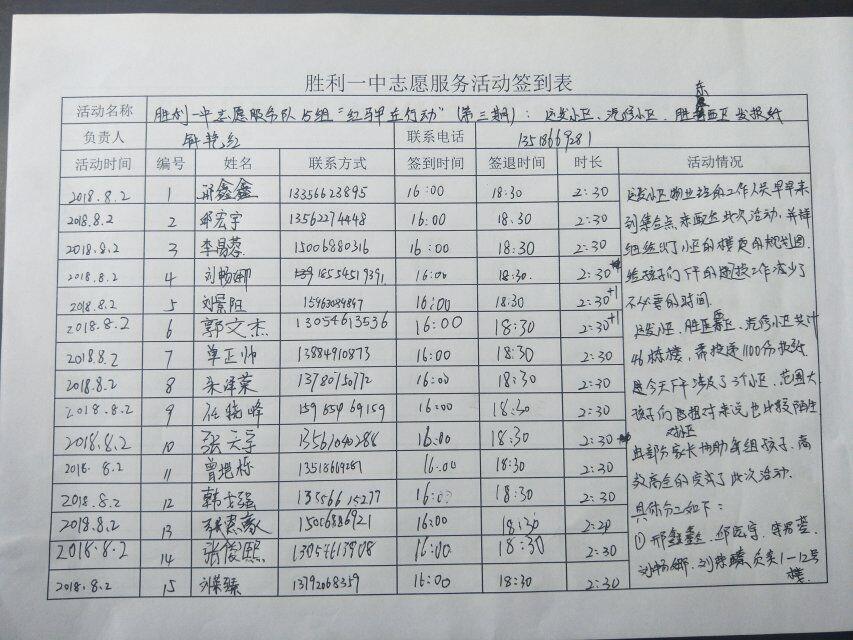 胜利一中志愿服务活动签到表
活动名称 胜利一中志愿服务队 组"红 在行动"(第三期):达发小区、汽修小区、胜 西区 发报纸
东
负责人 钟艳红 联系电话 13518669281
活动时间 编号 姓名 联系方式 签到时间 签退时间 时长 活动情况
2018.8.2 1 邢鑫鑫 13356623895 16:00 18:30 2:30
2018.8.2 2 邱宏宇 13562274448 16:00 18:30 2:30
2018.8.2 3 李昜蓉 15006880316 16:00 18:30 2:30
2018.8.2 4 刘畅娜 18554519391 16:00 18:30 2:30
2018.8.2 5 刘景阳 16:00 18:30 2:30+1
2018.8.2 6 郭文杰 13054613536 16:00 18:30 2:30+1
2018.8.2 7 单正帅 13884910873 16:00 18:30 2:30
2018.8.2 8 13780750772 16:00 18:30 2:30
2018.8.2 9 任 峰 15965469159 16:00 18:30 2:30
2018.8.2 10 张天宇 13561040284 16:00 18:30 2:30
2018.8.2 11 曾 栋 13518669281 16:00 18:30 2:30
2018.8.2 12 韩 强 16:00 18:30 2:30
2018.8.2 13 15006886921 16:00 18:30 2:20
2018.8.2 14 张俊熙 13054613908 16:00 18:30 2:30
2018.8.2 15 13792068359 16:00 18:30 2:30
达发小区物业 工作人员早早来
到集合点,来配合此次活动,并详
细给出了小区的楼 的规划图,
给孩子们下午的 投工作减少了
不必要的时间.
达发小区、胜 、汽修小区共计
46栋楼,需投递1100份报纸
今天下午涉及了3个小区,范围大
孩子们 相对来说也比较陌生
小区
由部分家长协助每组孩子,高
效高 的完成了此次活动.
具体分工如下:
① 邢鑫鑫、邱宏宇、
刘畅娜、 负责1-12号
楼.